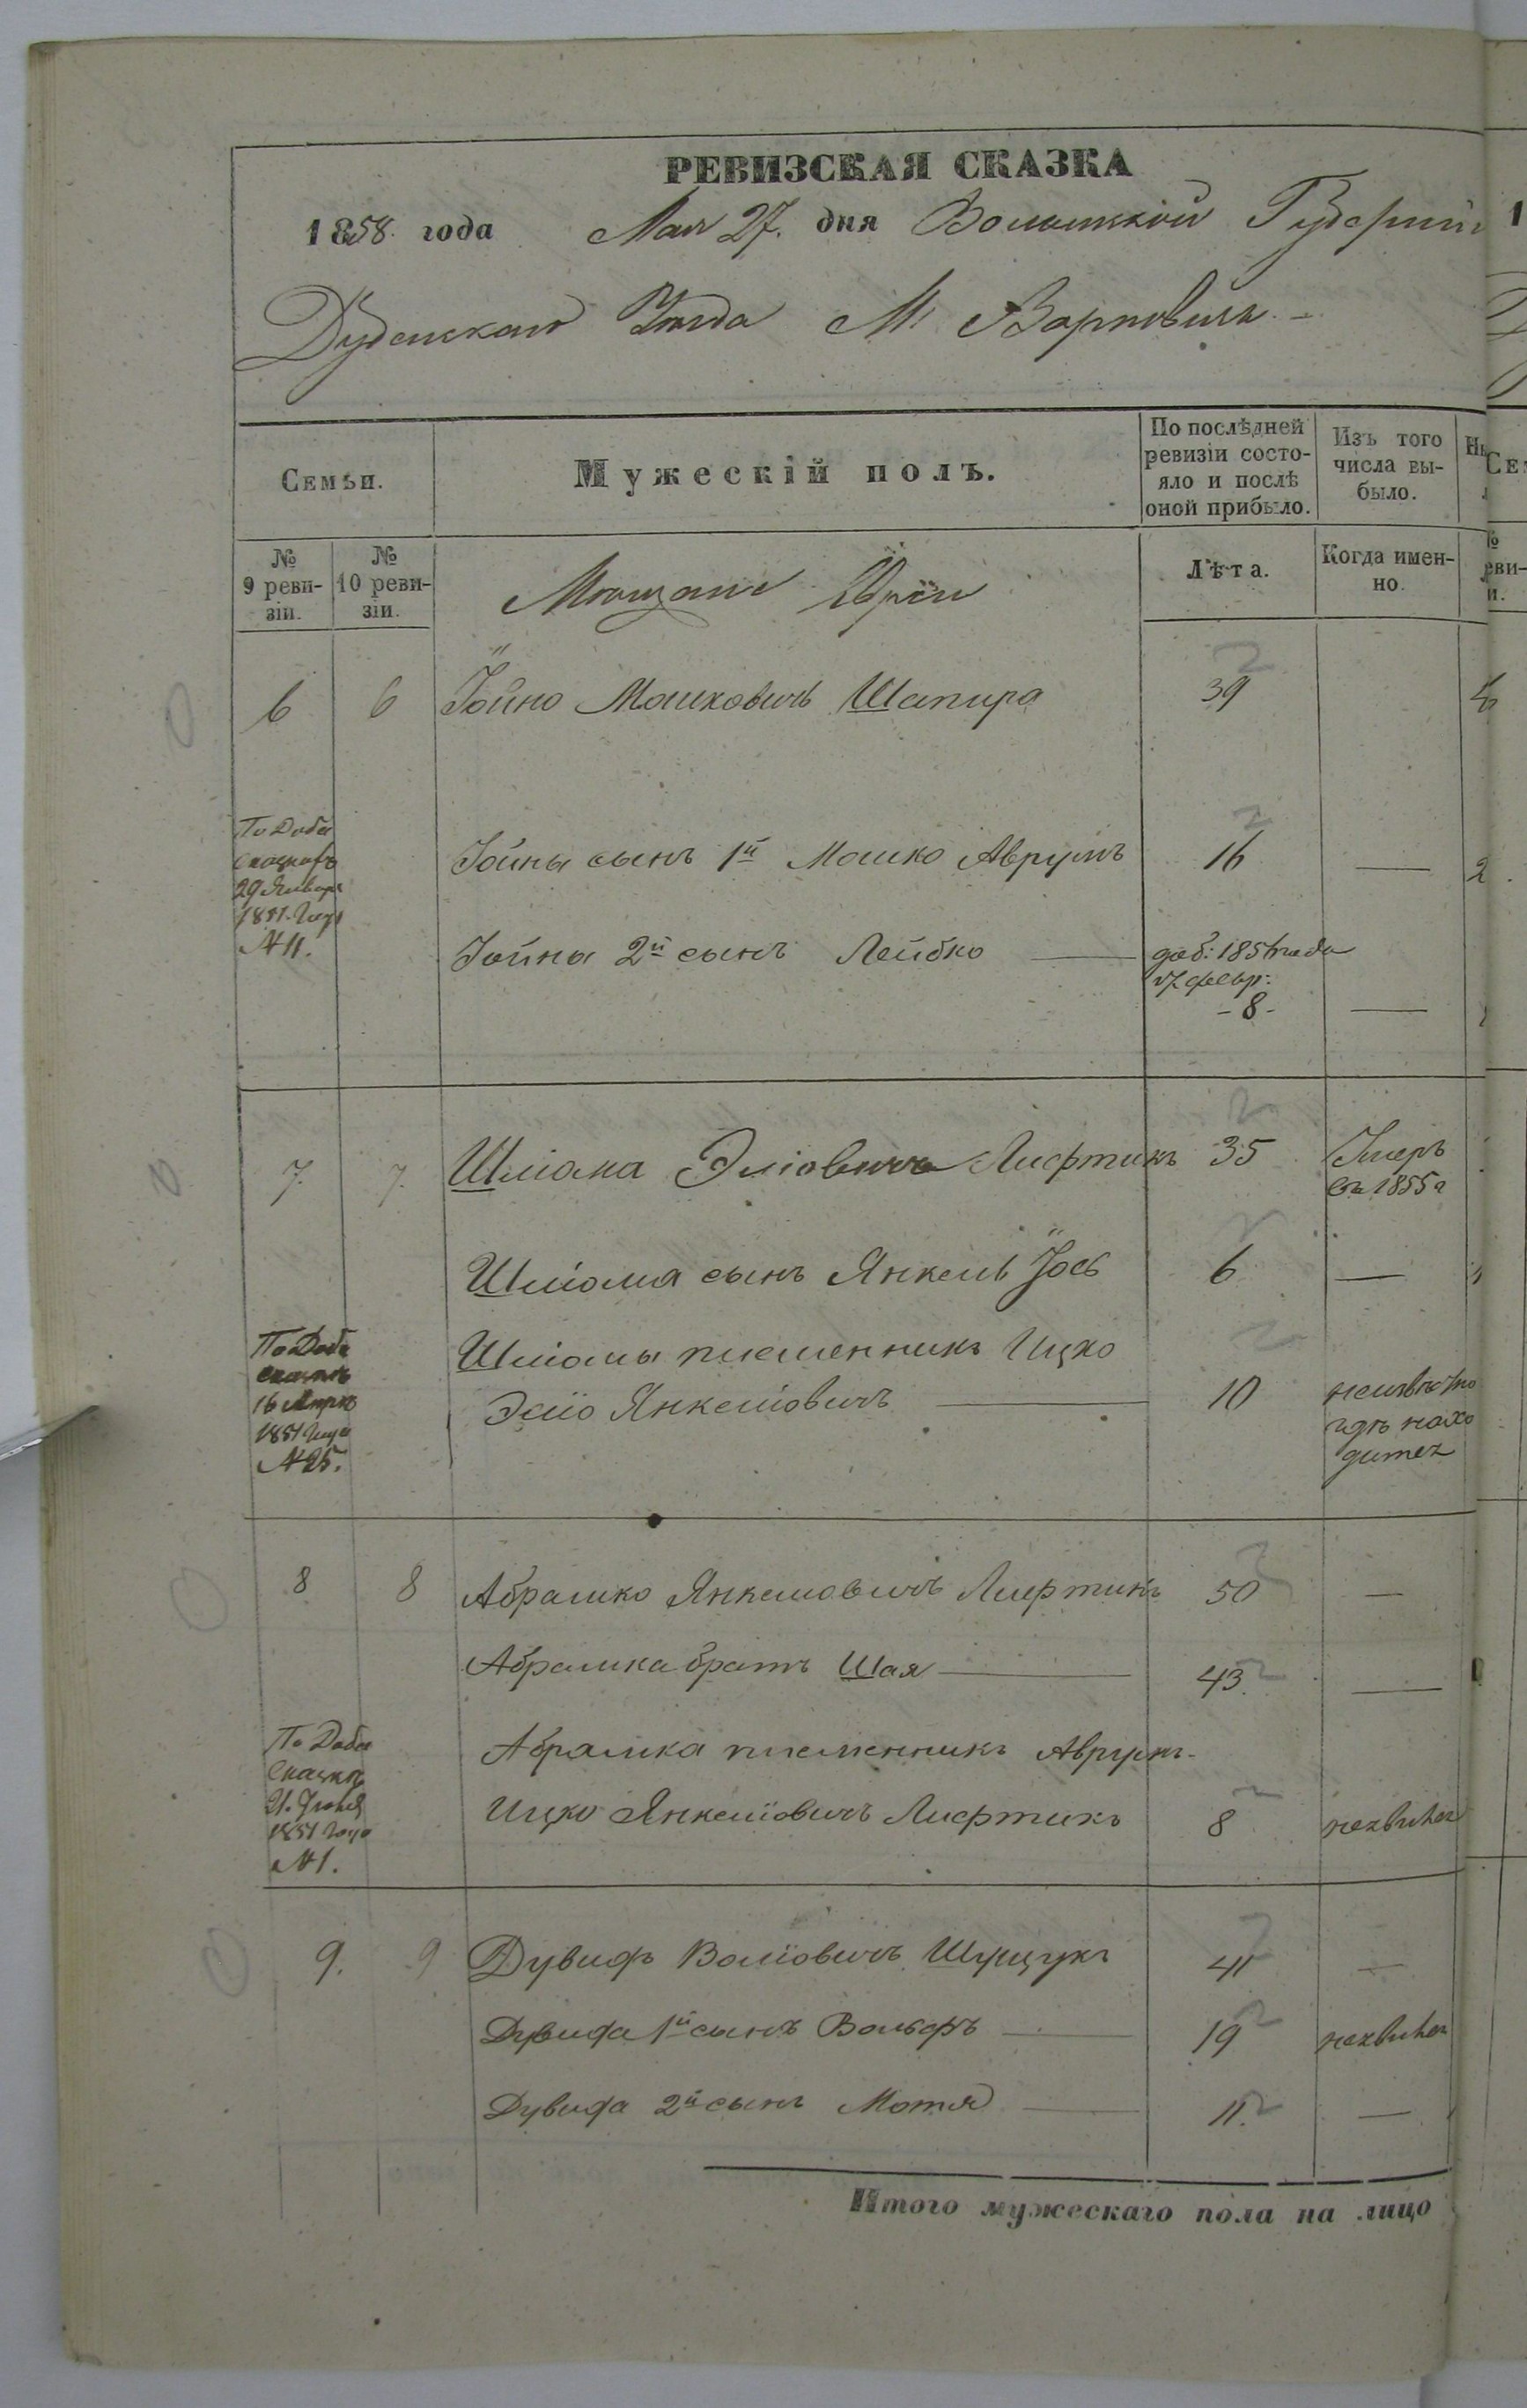 РЕВИЗСКАЯ СКАЗКА
1858. года Мая 27. дня Волынской Губерніи
Дубенскаго Уѣзда М. Варковичъ
Семьи.
Мужескій полъ.
По послѣдней ревизіи состояло и послѣ оной прибыло.
Изъ того числа выбыло.
№ 9 ревизіи.
№ 10 ревизіи.
Мѣщане Евреи
Лѣта.
Когда именно.
6 6 Іойно Мошковичъ Шапира 39
По Доба
Сказкаѣ
29 Января
1851. Года
№ 11.
Іойны сынъ 1й Мошко Аврумъ 16 —
Іойны 2й сынъ Лейбко —
-8- —
7. 7. Шліома Эліовичъ Лифтикъ 35 Умеръ
въ 1855 г
Шліома сынъ Янкель Іось 6 —
По Доба
сказкѣ
1851 Года
№ 25.
Шліомы племенникъ Ицко
Эліо Янкеліовичъ — 10 неизвѣстно
гдѣ нахо
дитсz
8 8 Абрамко Янкеліовичъ Лифтикъ 50 —
Абрамка братъ Шая — 43. —
По Доба
Сказкѣ
1851 Года
№ 1.
Абрамка племенникъ Аврумъ-
Ицко Янкеліовичъ Лифтикъ 8
9. 9 Дувидъ Воліовичъ Шущукъ 41 —
Дувида 1й сынъ Вольфъ — 19
Дувида 2й сынъ Мотя — 11. —
Итого мужескаго пола на лицо